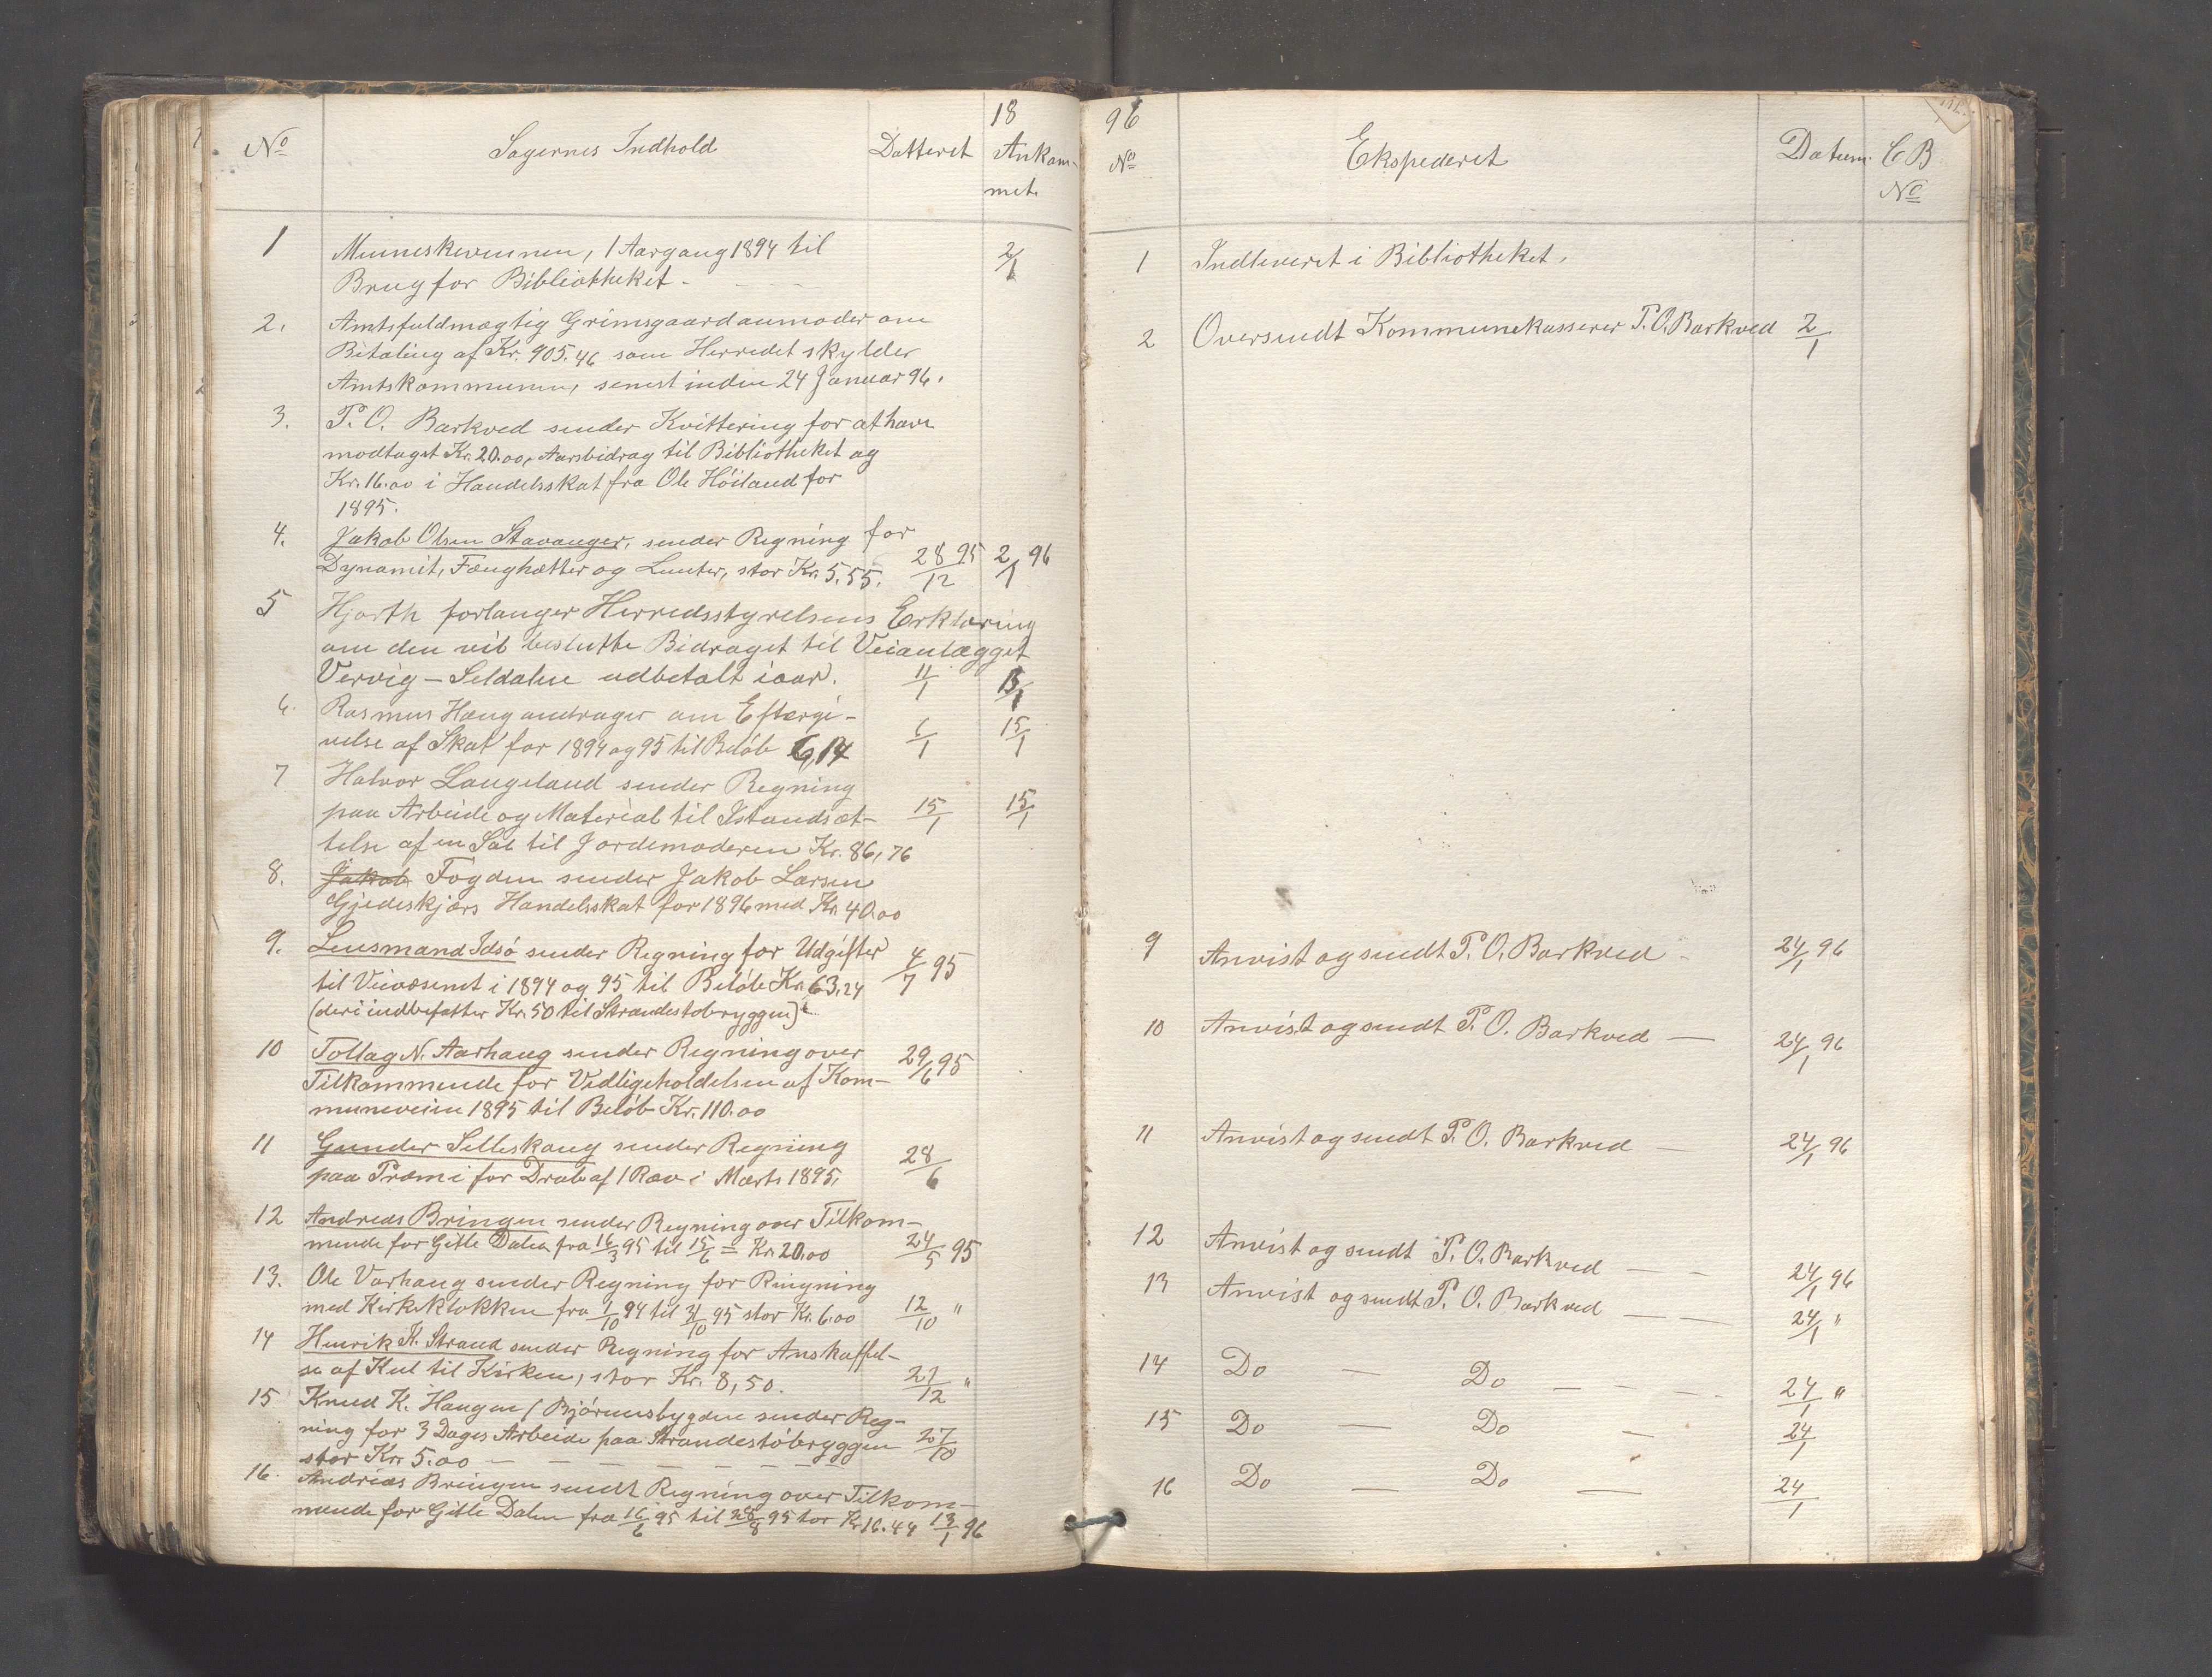 18
No Sagernes Indhold Datteret Ankom-
met.
1 Menneskevennen, 1 Aargang 1894 til
Brug for Bibliotheket - 2/1
2. Amtsfuldmægtig Grimsgaard anmoder om
Betaling af Kr. 905.46 som Herredet skylder
Amtskommunen, senest inden 24 Januar 96.
3. T. O. Barkved sender Kvittering for at have
modtaget Kr. 20.00, Aarsbidrag til Bibliotheket og
Kr. 16.00 i Handelsskat fra Ole Höiland for
1895.
4. Jakob Olsen Stavanger, sender Regning for
Dynamit, Fænghætter og Lunter, stor Kr. 5.55. 28/12 95 2/1 96
5 Hjorth forlanger Herredsstyrelsens Erklæring
om den vil beslutte Bidraget til Veianlægget
Vervig - Seldalen udbetalt iaar. 11/1 13/1
6. Rasmus Haug andrager om Eftergi-
velse af Skat for 1894 og 95 til Beløb 6,14 6/1 15/1
7 Halvor Langeland sender Regning
paa Arbeide og Material til Istandsæt- 15/1 15/1
telse af en Sal til Jordemoderen Kr. 86,76
8. Jakob Fogden sender Jakob Larsen
Gjedeskjærs Handelsskat for 1896 med Kr. 40.00
9. Lensmand Idsö sender Regning for Udgifter
til Veivæsenet i 1894 og 95 til Beløb Kr. 63.24 4/7 95
(deri indbefatter Kr. 50 til Strandestøbryggen)
10 Tollag N. Aarhaug sender Regning over 29/6 95
Tilkommende for Vedligeholdelsen af Kom-
muneveien 1895 til Beløb Kr. 110.00
11 Gunder Selleskaug sender Regning
paa Præmi for Drab af 1 Ræv i Marts 1895. 28/6
12 Andreas Bringen sender Regning over Tilkom-
mende for Gitle Dalen fra 16/3 95 til 15/6 = Kr. 20.00 24/5 95
13. Ole Varhaug sender Regning for Ringning
med Kirkeklokken fra 1/10 94 til 1/10 95 stor Kr. 6.00 12/10 "
14 Henrik H. Strand sender Regning for Anskaffel-
se af Kul til Kirken, stor Kr. 8,50. 21/12 "
15 Knud K. Haugen / Björeensbygden sender Reg-
ning for 3 Dages Arbeide paa Strandestøbryggen 27/10
stor Kr. 5.00 - - - - - - -
16. Andreas Bringen sendt Regning over Tilkom-
mende for Gitle Dalen fra 16/6 95 til 28/8 95 stor Kr. 16.44 13/1 96
96
No Ekspederet Datum. C B
No
1 Indleveret i Bibliotheket.
2 Oversendt Kommunekasserer T. O. Barkved 2/1
9 Anvist og sendt T. O. Barkved - 24/1 96
10 Anvist og sendt T. O. Barkved — 24/1 96
11 Anvist og sendt T. O. Barkved — 24/1 96
12 Anvist og sendt T. O. Barkved — - 24/1 96
13 Anvist og sendt T. O. Barkved — — 24/1 "
14 Do — Do - - - - 24/1 "
15 Do — Do — 24/1
16 Do — Do — 24/1